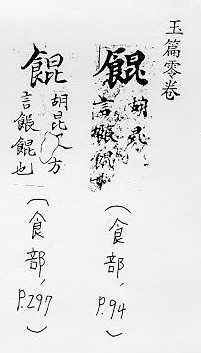 玉篇零卷
餛
胡昆
言餦餛也
(食部, P.94)
餛
胡昆反方
言餦餛也
(食部, P.297)